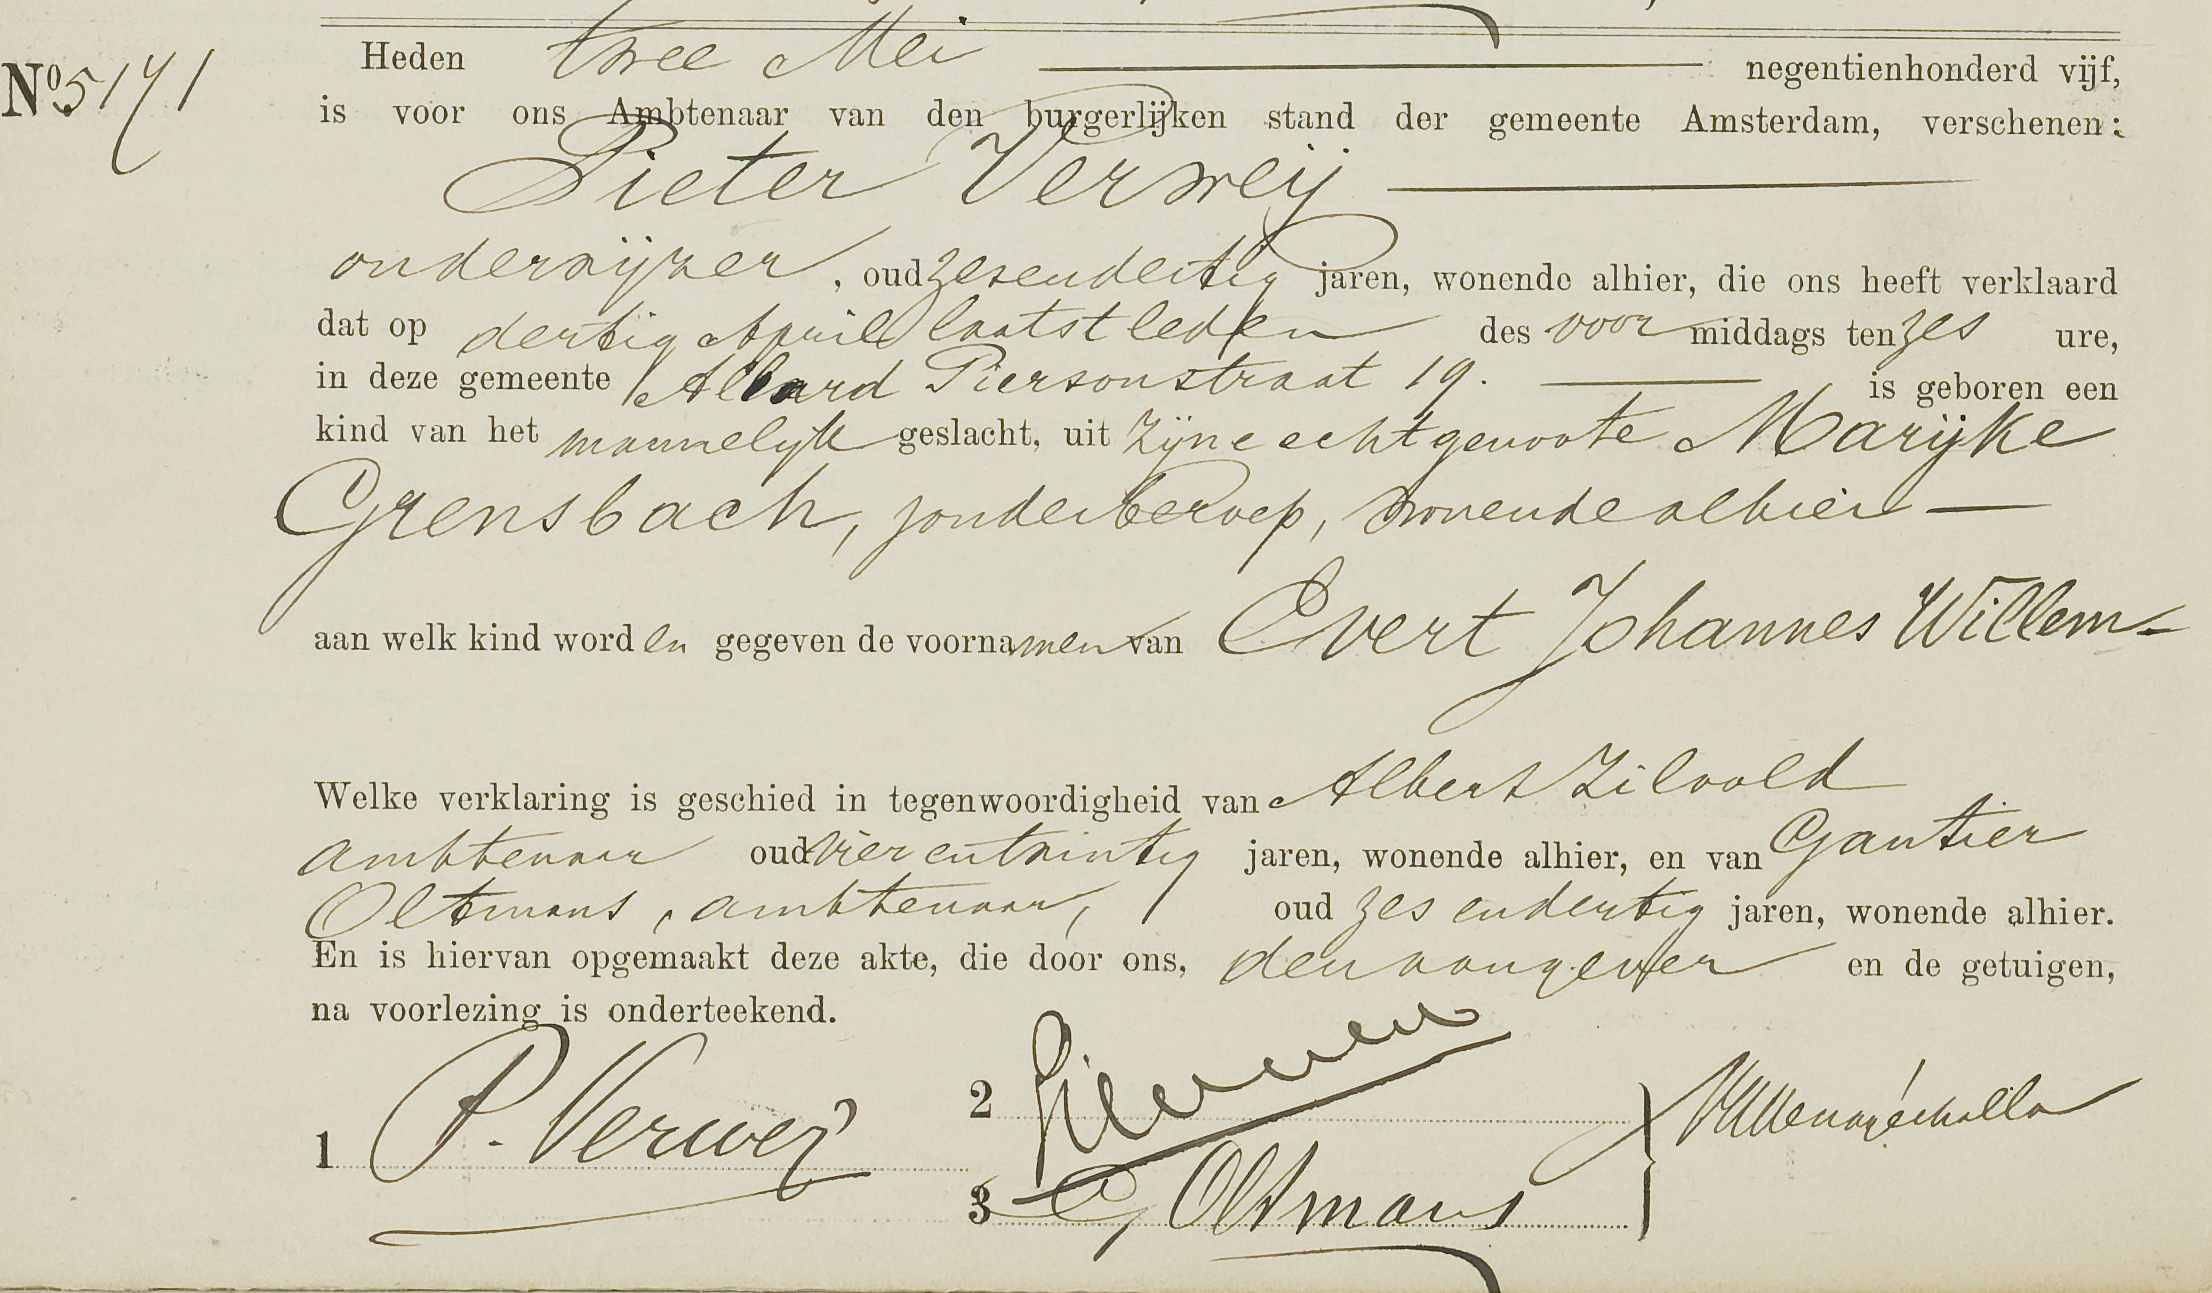 Heden twee Mei negentienhonderd vijf,
No 5171
is voor ons Ambtenaar van den burgerlijken stand der gemeente Amsterdam, verschenen:
Pieter Verweij
onderwijzer, oud zesendertig jaren, wonende alhier, die ons heeft verklaard
dat op dertig April laatstleden des voormiddags ten zes ure,
in deze gemeente Allard Piersonstraat 19. is geboren een
kind van het mannelijk geslacht, uit zijne echtgenoote Marijke
Grensbach, zonder beroep, wonende alhier
aan welk kind worden gegeven de voornamen van Evert Johannes Willem
Welke verklaring is geschied in tegenwoordigheid van Albert Zilvold
ambtenaar oud vierentwintig jaren, wonende alhier, en van Gautier
Oltmans, ambtenaar, oud zesendertig jaren, wonende alhier.
En is hiervan opgemaakt deze akte, die door ons, den aangever en de getuigen,
na voorlezing is onderteekend.
1 P. Verweij
2
3 G Oltmans